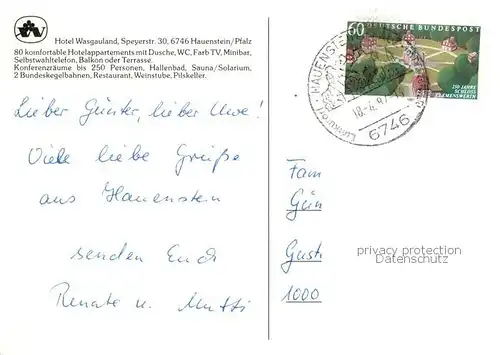 Hotel Wasgauland, Speyerstr. 30, 6746 Hauenstein/Pfalz
80 komfortable Hotelappartements mit Dusche, WC, Farb TV, Minibar,
Selbstwahltelefon, Balkon oder Terrasse.
Konferenzräume bis 250 Personen, Hallenbad, Sauna/Solarium,
2 Bundeskegelbahnen, Restaurant, Weinstube, Pilskeller.
Lieber Günter, lieber Uwe!
Viele liebe Grüße
aus Hauenstein
senden Euch
Renate u. Mutti
60 DEUTSCHE BUNDESPOST
250 JAHRE
SCHLOSS
CLEMENSWERTH
6746
Fam
Gün
Gust
1000
privacy protection
Datenschutz